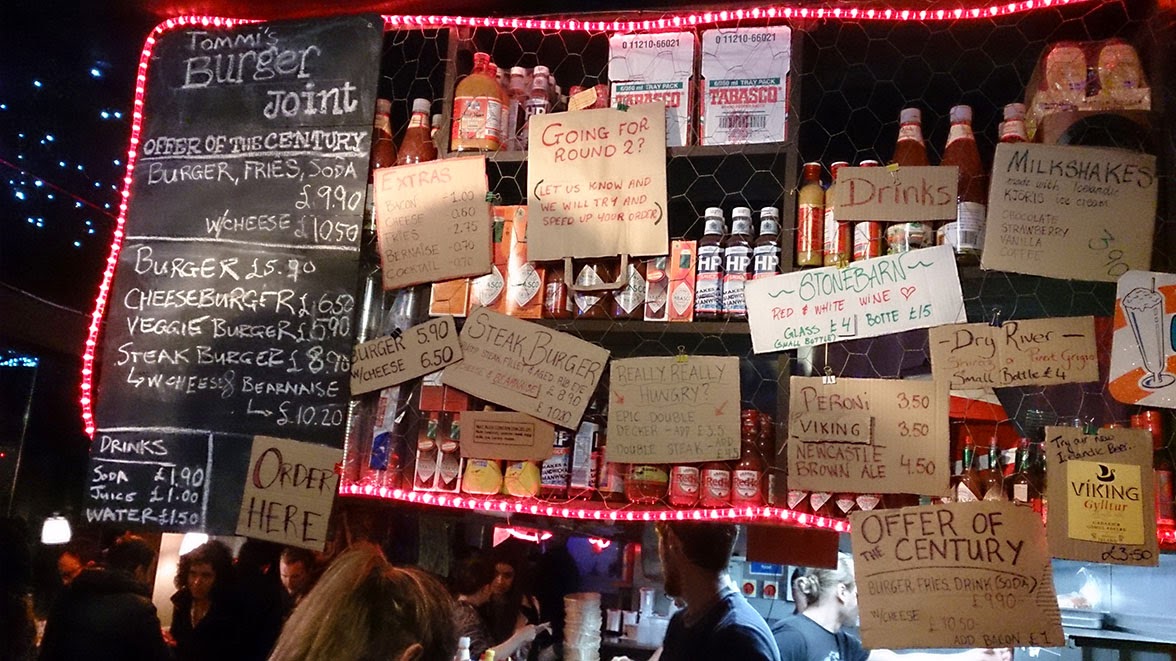 Tommi's
Burger
Joint
OFFER OF THE CENTURY
BURGER, FRIES, SODA
£ 9.90
W/CHEESE £10.50
BURGER £5.90
CHEESEBURGER £6.50
VEGGIE BURGER £5.90
STEAK BURGER £8.90
W CHEESE & BEARNAISE
£10.20
DRINKS
SODA £1.90
JUICE £1.00
WATER £1.50
ORDER
HERE
EXTRAS
BACON - 1.00
CHEESE 0.60
FRIES - 2.75
BERNAISE - 0.70
COCKTAIL - 0.70
0 11210-66021
TABASCO
0 11210-66021
TABASCO
GOING FOR
ROUND 2?
(LET US KNOW AND
WE WILL TRY AND
SPEED UP YOUR ORDER)
Drinks
MILKSHAKES
made with Icelandic
KJORIS ice cream
CHOCOLATE
STRAWBERRY
VANILLA
COFFEE
HP
HP
HP
~ STONEBARN ~
RED & WHITE WINE ♡
GLASS £4 BOTTE £15
(SMALL BOTTLE)
- Dry River -
Pinot Grigio
Small Bottle £4
BURGER 5.90
W/CHEESE 6.50
STEAK BURGER
£8.90
& BEARNAISE
£10.20
REALLY, REALLY
HUNGRY?
EPIC DOUBLE
DECKER - ADD £3.5
DOUBLE STEAK - ADD
£4.5
PERONI 3.50
VIKING 3.50
NEWCASTLE
BROWN ALE 4.50
Try our new
Icelandic Beer.
VIKING
Gylltur
£3.50
OFFER OF
THE CENTURY
BURGER, FRIES, DRINK (SODA)
£9.90
W/CHEESE £10.50
ADD BACON £1